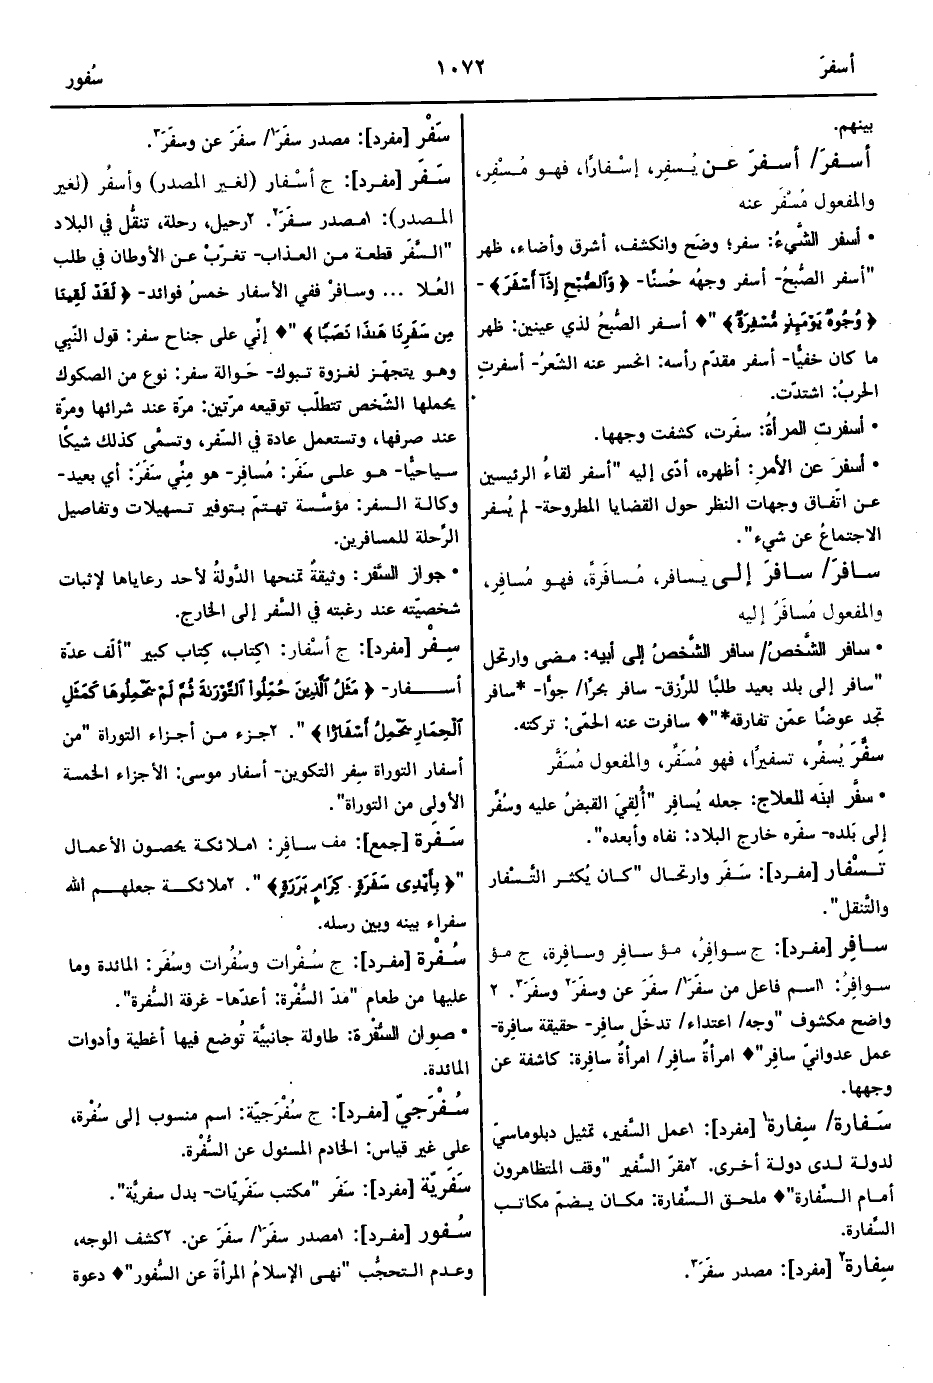 أسفرَ
١٠٧٢
سُفور
بينهم.
أسفرَ/ أسفرَ عن يُسفِر، إسْفارًا، فهو مُسْفِر،
والمفعول مُسْفَر عنه
• أسفر الشَّيءُ: سفر؛ وضَح وانكشف، أشرق وأضاء، ظهر
"أسفر الصُّبحُ- أسفر وجهُه حُسنًا- ﴿وَالصُّبْحِ إِذَا أَسْفَرَ﴾-
﴿وُجُوهٌ يَوْمَئِذٍ مُسْفِرَةٌ﴾ "♦ أسفر الصُّبحُ لذي عينين: ظهر
ما كان خفيًّا- أسفر مقدّم رأسه: انحسر عنه الشّعرُ- أسفرتِ
الحربُ: اشتدّت.
• أسفرتِ المرأةُ: سفَرت، كشفت وجهها.
• أسفرَ عن الأمر: أظهره، أدّى إليه "أسفر لقاءُ الرئيسين
عن اتّفاق وجهات النظر حول القضايا المطروحة- لم يُسفر
الاجتماعُ عن شيء".
سافرَ/ سافرَ إلى يسافر، مُسافَرةً، فهو مُسافِر،
والمفعول مُسافَرٌ إليه
• سافر الشَّخصُ/ سافر الشَّخصُ إلى أبيه: مضى وارتحل
"سافر إلى بلد بعيد طلبًا للرِّزق- سافر بحرًا/ جوًّا- *سافر
تجد عوضًا عمّن تفارقه*"♦ سافرت عنه الحمّى: تركته.
سفَّرَ يُسفِّر، تسفيرًا، فهو مُسَفِّر، والمفعول مُسفَّر
• سفَّر ابنَه للعلاج: جعله يُسافِر "أُلقيَ القبضُ عليه وسُفِّر
إلى بَلده- سفّره خارج البلاد: نفاه وأبعده".
تَسْفار [مفرد]: سَفَر وارتحال "كان يُكثر التَّسْفار
والتَّنقل".
سافِر [مفرد]: ج سوافِرُ، مؤ سافِر وسافِرة، ج مؤ
سوافِرُ: ١اسم فاعل من سفَرَ١/ سفَرَ عن وسفَرَ٢ وسفَرَ٣. ٢
واضح مكشوف "وجه/ اعتداء/ تدخّل سافِر- حقيقة سافِرة-
عمل عدوانيّ سافِر"♦ امرأةٌ سافِر/ امرأةٌ سافِرة: كاشفة عن
وجهها.
سَفارة/ سِفارة١ [مفرد]: ١عمل السَّفير، تمثيل دبلوماسيّ
لدولة لدى دولة أخرى. ٢مقرّ السَّفير "وقف المتظاهرون
أمام السَّفارة"♦ ملحق السَّفارة: مكان يضمّ مكاتب
السَّفارة.
سِفارة٢ [مفرد]: مصدر سفَرَ٣.
سَفْر [مفرد]: مصدر سفَرَ١/ سفَرَ عن وسفَرَ٣.
سَفَر [مفرد]: ج أسْفار (لغير المصدر) وأسفُر (لغير
المصدر): ١مصدر سفَرَ٢. ٢رحيل، رحلة، تنقُّل في البلاد
"السَّفَر قطعة من العذاب- تغرّبْ عن الأوطان في طلب
العُلا ... وسافِرْ ففي الأسفار خمسُ فوائد- ﴿لَقَدْ لَقِينَا
مِن سَفَرِنَا هَذَا نَصَبًا﴾ "♦ إنّي على جناح سفر: قول النّبي
وهو يتجهّز لغزوة تبوك- حَوالة سفر: نوع من الصكوك
يحملها الشّخص تتطلّب توقيعه مرّتين: مرّة عند شرائها ومرّة
عند صرفها، وتستعمل عادة في السّفر، وتسمّى كذلك شيكًا
سياحيًّا- هو على سَفَر: مُسافِر- هو منِّي سَفَرَ: أي بعيد-
وكالة السفر: مؤسَّسة تهتمّ بتوفير تسهيلات وتفاصيل
الرِّحلة للمسافرين.
• جواز السَّفَر: وثيقةٌ تمنحها الدَّولةُ لأحد رعاياها لإثبات
شخصيّته عند رغبته في السَّفر إلى الخارج.
سِفْر [مفرد]: ج أسْفار: ١كِتاب، كِتاب كبير "ألّف عدة
أسفار- ﴿مَثَلُ الَّذِينَ حُمِّلُوا التَّوْرَىٰةَ ثُمَّ لَمْ يَحْمِلُوهَا كَمَثَلِ
الْحِمَارِ يَحْمِلُ أَسْفَارًا﴾ ". ٢جزء من أجزاء التوراة "من
أسفار التوراة سِفر التكوين- أسفار موسى: الأجزاء الخمسة
الأولى من التوراة".
سَفَرة [جمع]: مف سافِر: ١ملائكة يحصون الأعمال
"﴿بِأَيْدِي سَفَرَةٍ. كِرَامٍ بَرَرَةٍ﴾ ". ٢ملائكة جعلهم الله
سفراء بينه وبين رسله.
سُفْرة [مفرد]: ج سُفْرات وسُفُرات وسُفَر: المائدة وما
عليها من طعام "مَدّ السُّفْرة: أعدّها- غرفة السُّفرة".
• صِوان السُّفْرة: طاولة جانبيَّة تُوضع فيها أغطية وأدوات
المائدة.
سُفْرَجيّ [مفرد]: ج سُفْرَجيّة: اسم منسوب إلى سُفْرة،
على غير قياس: الخادم المسئول عن السُّفْرة.
سَفَريّة [مفرد]: سَفَر "مكتب سَفَريّات- بدل سفريَّة".
سُفور [مفرد]: ١مصدر سفَرَ١/ سفَرَ عن. ٢كشف الوجه،
وعدم التحجُّب "نهى الإسلامُ المرأةَ عن السُّفور"♦ دعوة